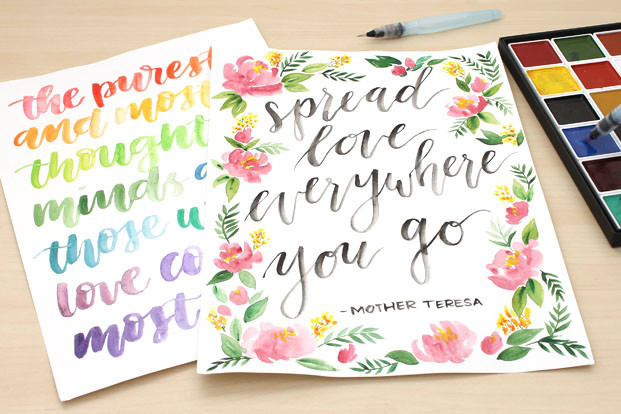 the purest
and most
thought
minds
those
love co
most
spread
love
everywhere
you go
- MOTHER TERESA